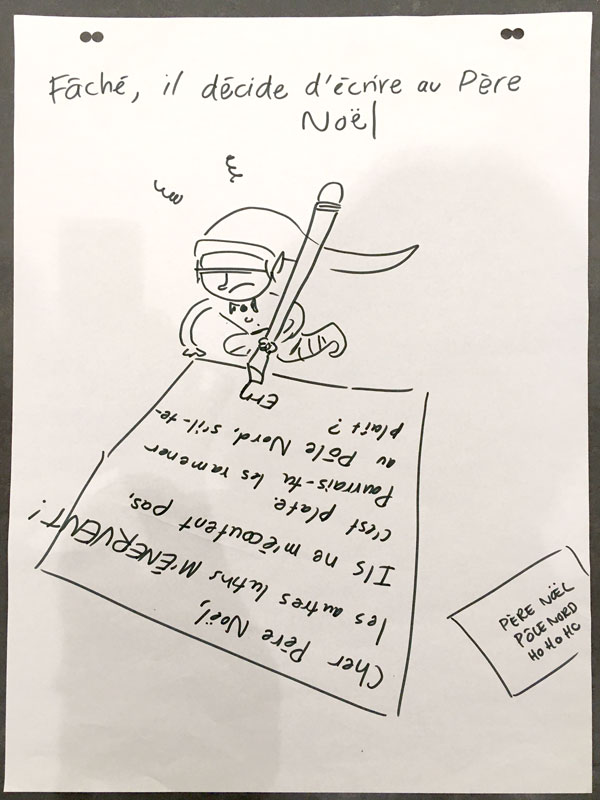 Fâché, il décide d'écrire au Père
Noël
Cher Père Noël,
les autres lutins M'ÉNERVENT!
Ils ne m'écoutent pas,
c'est plate.
Pourrais-tu les ramener
au Pôle Nord, s'il-te-
plaît ?
Ern
PÈRE NOËL
PÔLE NORD
HO HO HO